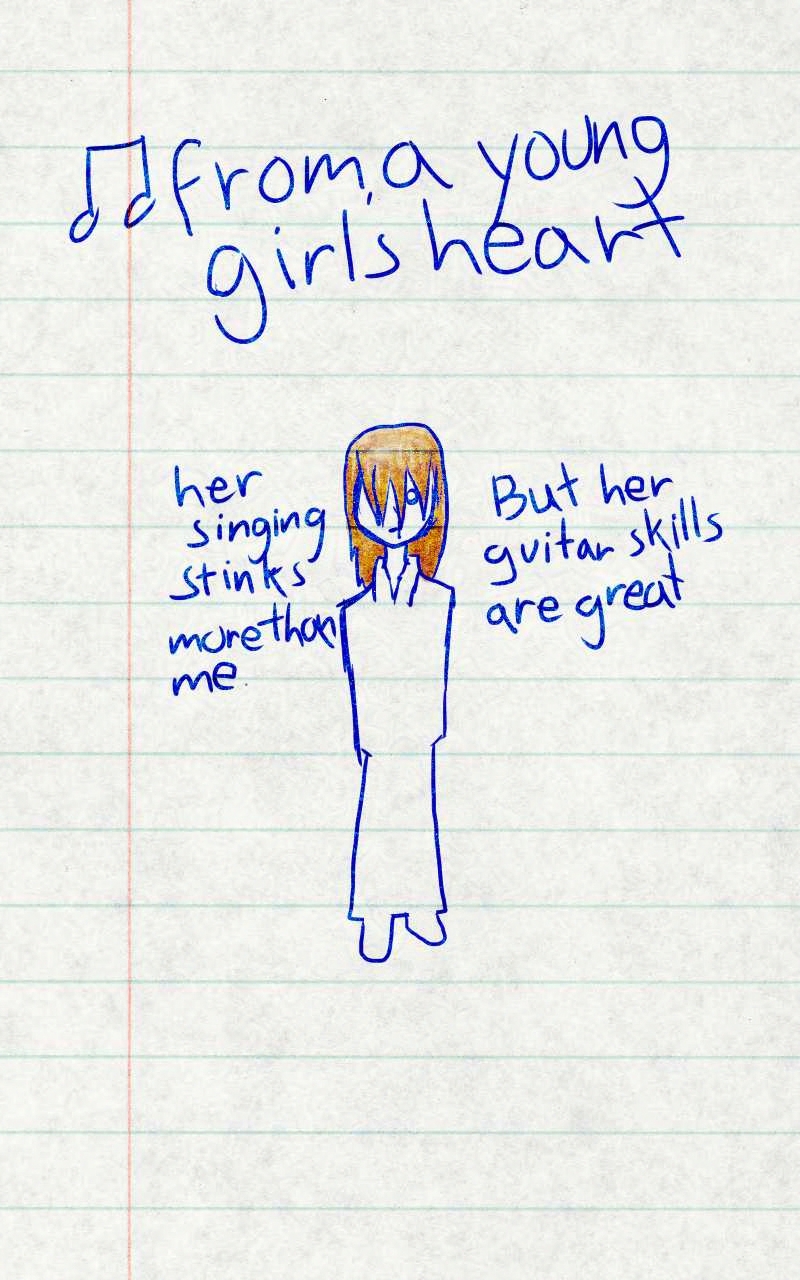 ♫ from a young
girl's heart
her
singing
stinks
more than
me
But her
guitar skills
are great